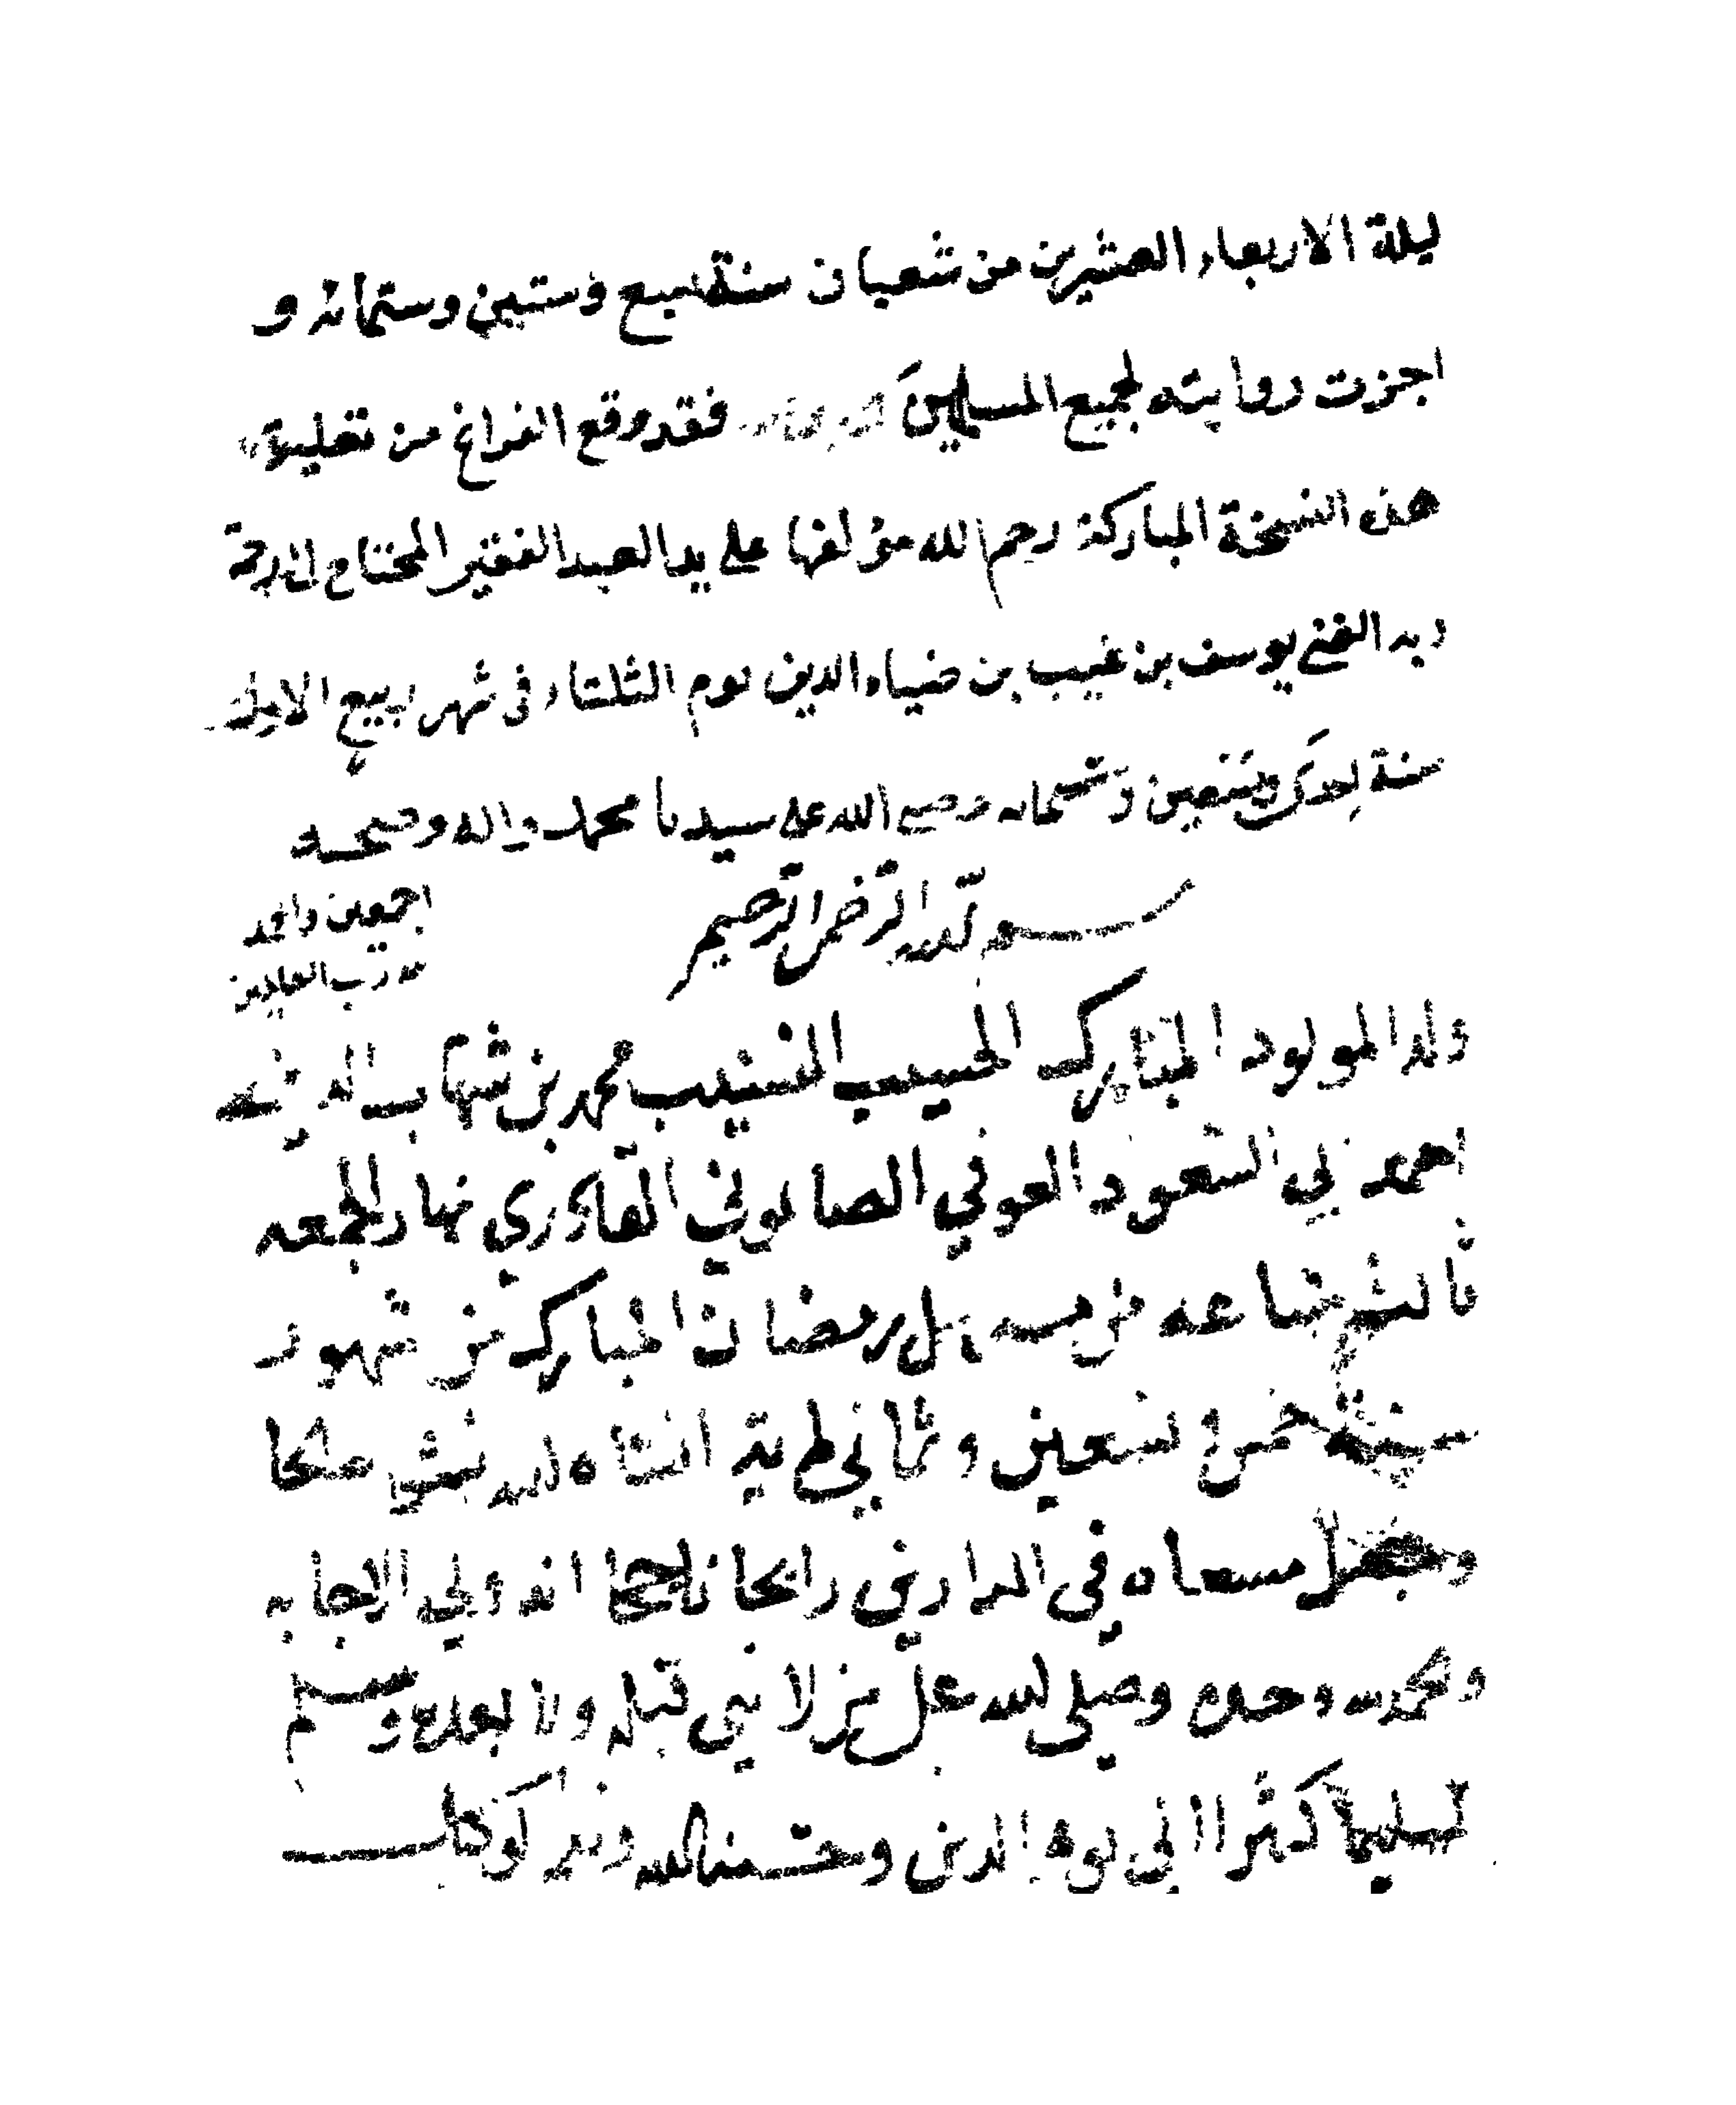 ليلة الاربعاء العشرين من شعبان سنة سبع وستين وستمائة و
اجزت روايته لجميع المسلمين فقد وقع الفراغ من
هذه النسخة المباركة رحم الله مؤلفها على يد العبد الفقير المحتاج الى رحمة
ربه الغني يوسف بن غيب بن ضياء الدين يوم الثلثاء في شهر ربيع الاول
سنة احدى وصلى الله على سيدنا محمد واله وصحبه
اجمعين والحمد
لله رب العالمين
بسم الله الرحمن الرحيم
ولد المولود المبارك الحسيب النسيب محمد بن شهاب الدين
احمد بن ابي السعود العوفي الصالوني القادري نهار الجمعه
ثالث ساعه من رمضان المبارك من شهور
سنة خمس وتسعين وثماني مية انشاه الله
وجعل مسعاه في الدارين رابحا ناجحا انه ولي الاجابه
والحمد لله وحده وصلى الله على من لا نبي قبله ولا بعده وسلم
تسليما كثيرا الى يوم الدين وحسبنا الله ونعم الوكيل